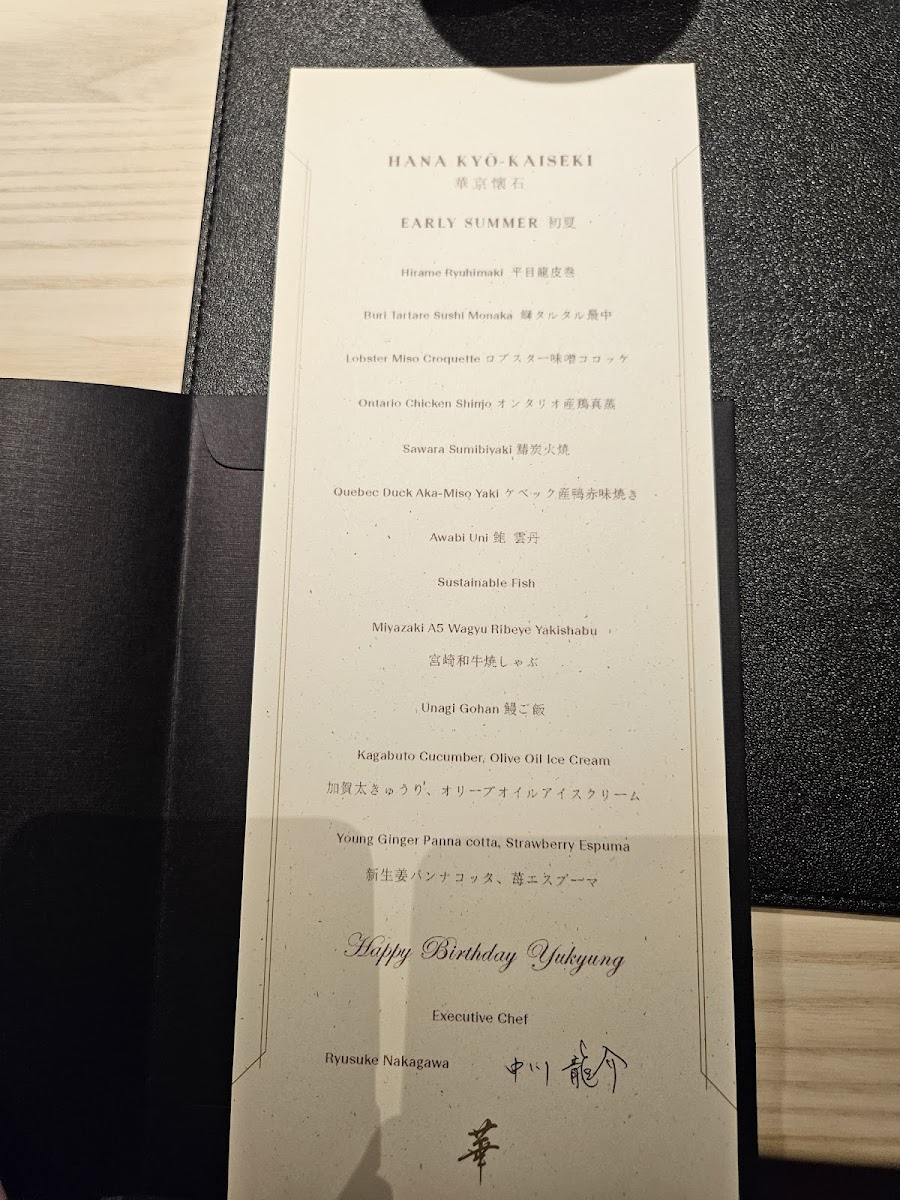 HANA KYŌ-KAISEKI
華京懐石
EARLY SUMMER 初夏
Hirame Ryuhimaki 平目龍皮巻
Buri Tartare Sushi Monaka 鰤タルタル最中
Lobster Miso Croquette ロブスター味噌コロッケ
Ontario Chicken Shinjo オンタリオ産鶏真蒸
Sawara Sumibiyaki 鰆炭火焼
Quebec Duck Aka-Miso Yaki ケベック産鴨赤味焼き
Awabi Uni 鮑 雲丹
Sustainable Fish
Miyazaki A5 Wagyu Ribeye Yakishabu
宮崎和牛焼しゃぶ
Unagi Gohan 鰻ご飯
Kagabuto Cucumber, Olive Oil Ice Cream
加賀太きゅうり、オリーブオイルアイスクリーム
Young Ginger Panna cotta, Strawberry Espuma
新生姜パンナコッタ、苺エスプーマ
Happy Birthday Yukyung
Executive Chef
Ryusuke Nakagawa 中川 龍介
華